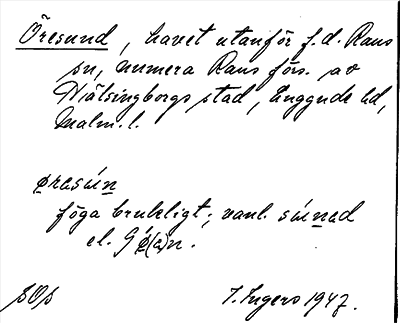 Öresund, havet utanför f.d. Raus
sn, numera Raus förs. av
Hälsingborgs stad, Luggude hd,
Malm.l.
øresún
föga brukligt; vanl. súnad
el. Sǿ(a)n.
SOp
I. Ingers 1947.